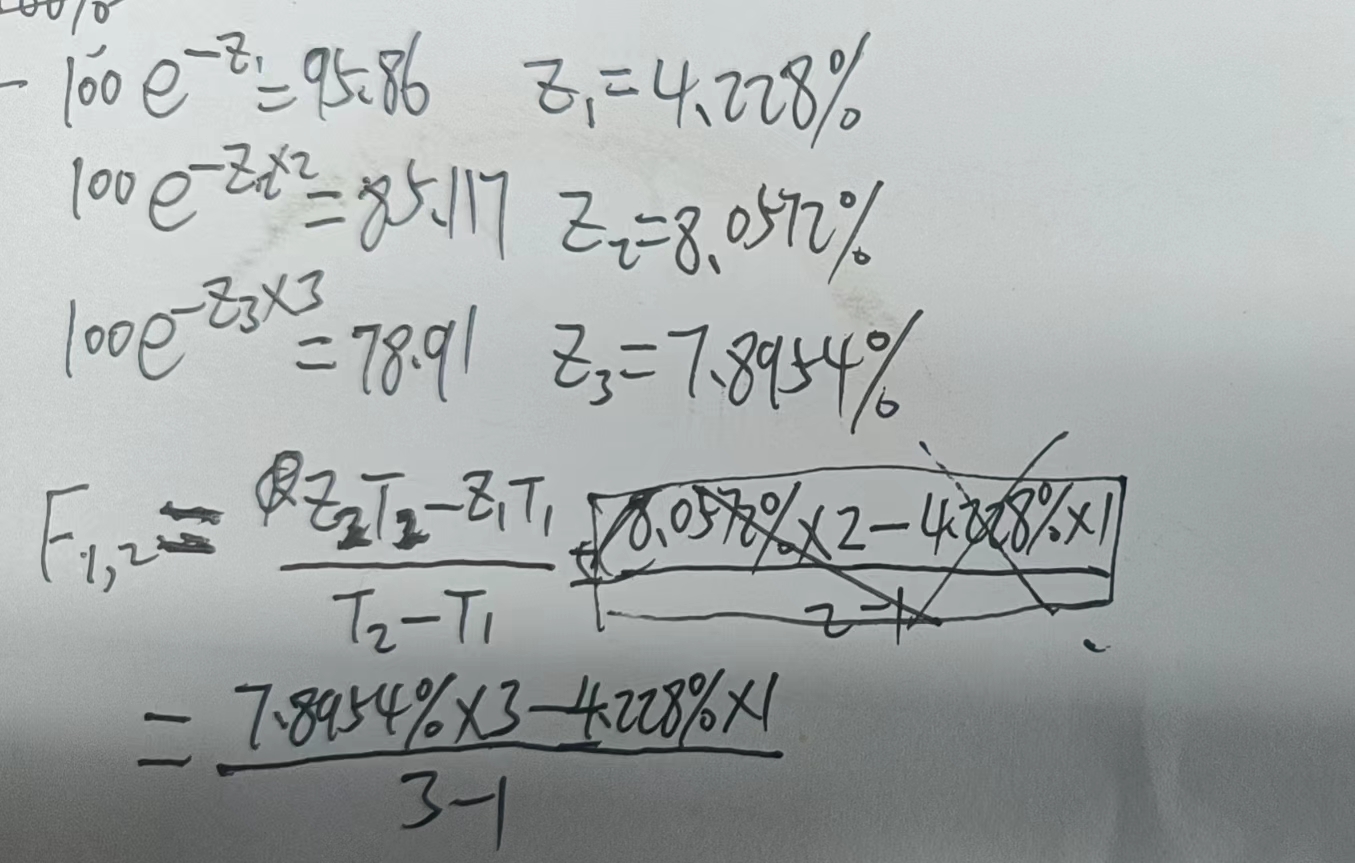 100e^{-Z_1} = 95.86 Z_1 = 4.228%
100e^{-Z_2×2} = 85.117 Z_2 = 8.0572%
100e^{-Z_3×3} = 78.91 Z_3 = 7.8954%
F_{1,2} = \frac{Z_2T_2 - Z_1T_1}{T_2 - T_1} = \frac{8.0572%×2 - 4.228%×1}{2-1}
= \frac{7.8954%×3 - 4.228%×1}{3-1}